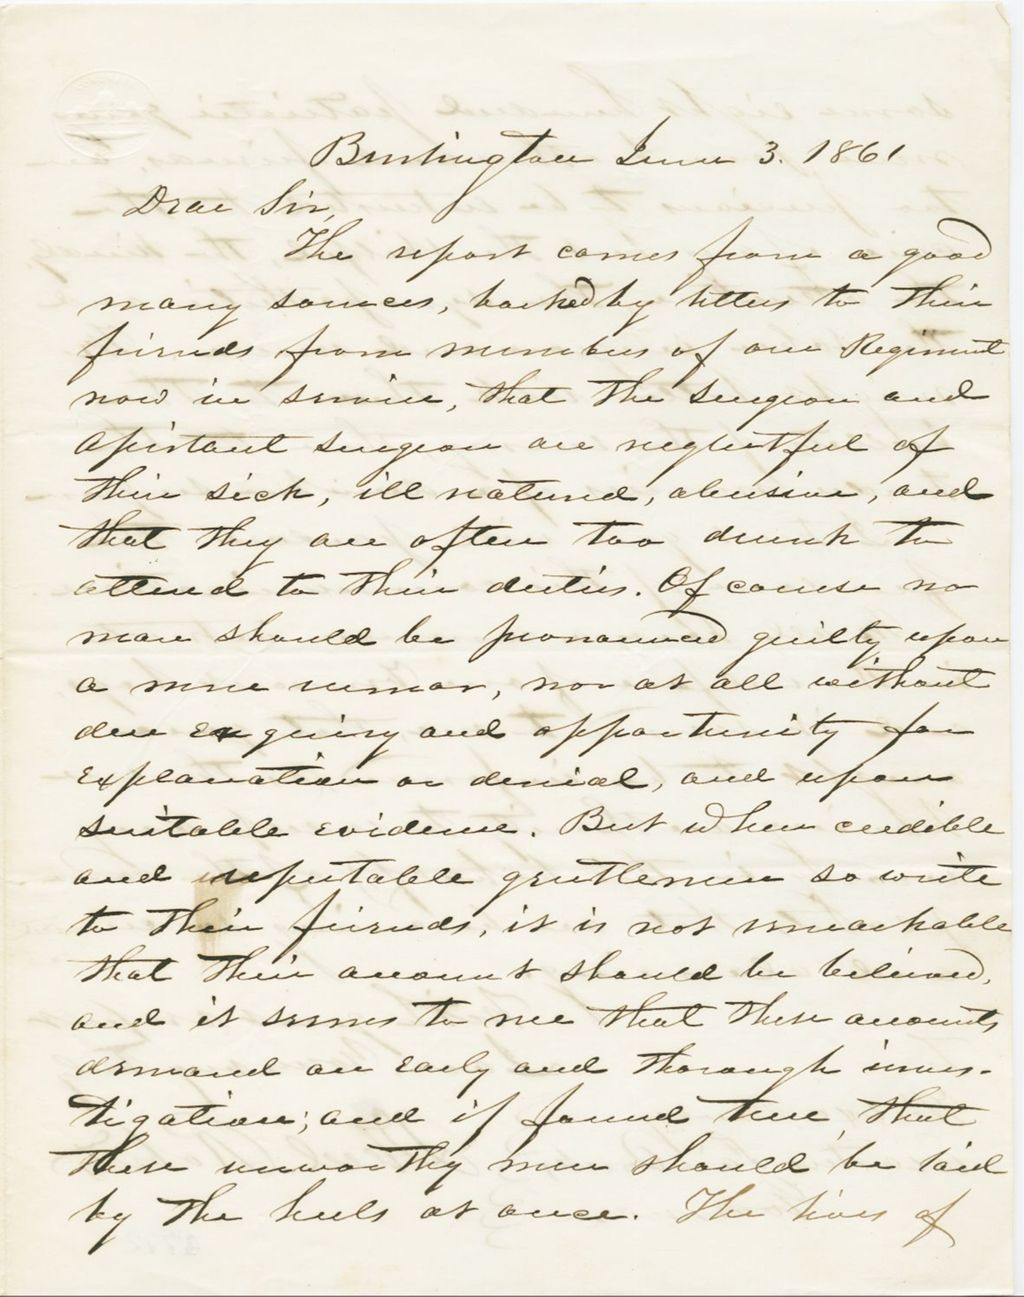 Burlington June 3. 1861
Dear Sir,
The report comes from a good
many sources, backed by letters to their
friends from members of our Regiment
now in service, that the surgeon and
assistant surgeon are neglectful of
their sick, ill natured, abusive, and
that they are often too drunk to
attend to their duties. Of course no
man should be pronounced guilty upon
a mere rumor, nor at all without
due enquiry and opportunity for
explanation or denial, and upon
suitable evidence. But when credible
and reputable gentlemen so write
to their friends, it is not remarkable
that their account should be believed,
and it seems to me that these accounts
demand an early and thorough inves-
tigation; and if found true, that
these unworthy men should be laid
by the heels at once. The lives of